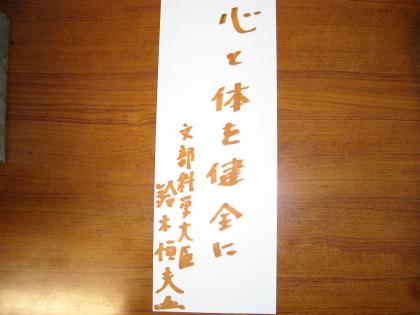 心と体を健全に
文部科学大臣
鈴木恒夫